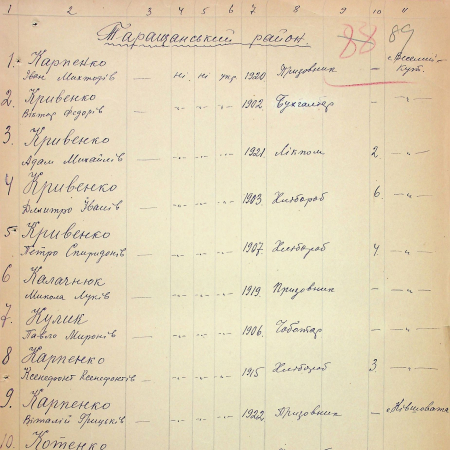 1 2 3 4 5 6 7 8 9 10 11
Таращанський район 88 89
1. Карпенко с. Веселий-
Іван — ні. ні укр 1920 Призовник — Кут.
2. Кривенко
Віктор Федорів — -„- -„- -„- 1902 Бухгалтер — -„-
3. Кривенко
Адам Михайлів — -„- -„- -„- 1921. 2 -„-
4 Кривенко
Дмитро Іванів — -„- -„- -„- 1903 Хлібороб 6. -„-
5 Кривенко
Петро Спиридонів — -„- -„- -„- 1907. Хлібороб 4 -„-
6 Калачнюк
Микола Луків — -„- -„- -„- 1919. Призовник — -„-
7. Кулик
Павло Миронів — -„- -„- -„- 1906. Чоботар — -„-
8 Карпенко
Ксенофонт Ксенофонтів — -„- -„- -„- 1915 Хлібороб 3 -„-
9. Карпенко
Віталій Грицьків — -„- -„- -„- 1922 Призовник —
10. Котенко